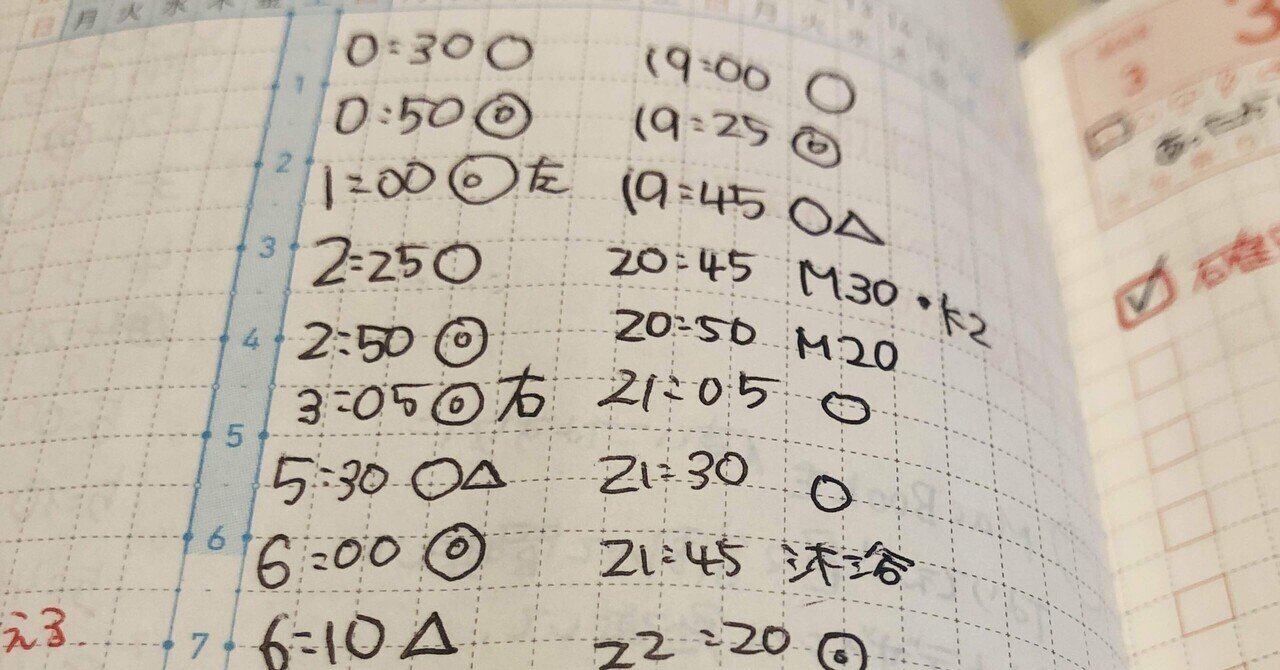 月 火 水 木 金 土
0:30 ○
0:50 ◎
1:00 ◎ 左
2:25 ○
2:50 ◎
3:05 ◎ 右
5:30 ○△
6:00 ◎
6:10 △
19:00 ○
19:25 ◎
19:45 ○△
20:45 M30・K2
20:50 M20
21:05 ○
21:30 ○
21:45 沐浴
22:20 ◎
1
2
3
4
5
6
7
える.
3
3